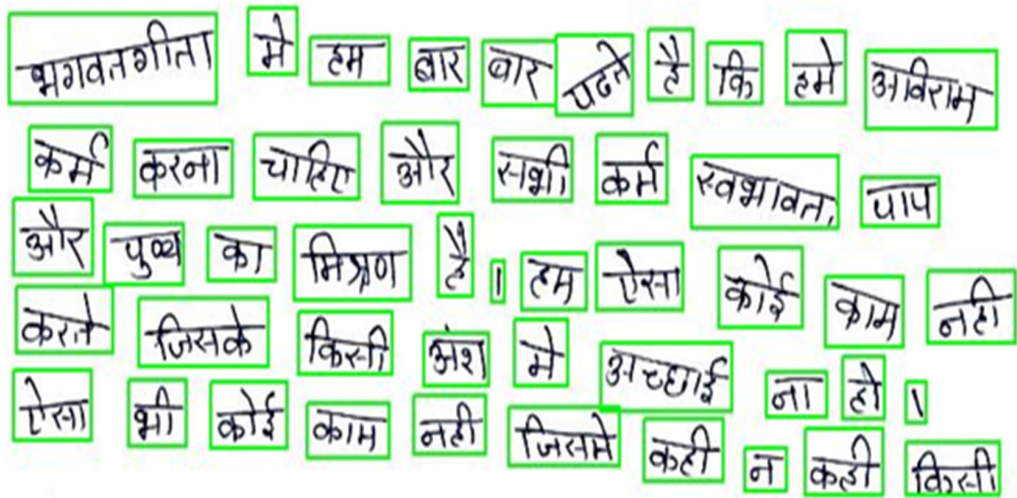 भगवतगीता मे हम बार बार पढते है कि हमे अविराम
कर्म करना चाहिए और सभी कर्म स्वभावत, पाप
और पुण्य का मिश्रण है । हम ऐसा कोई काम नही
करते जिसके किसी अंश मे अच्छाई ना हो ।
ऐसा भी कोई काम नही जिसमे कही न कही किसी